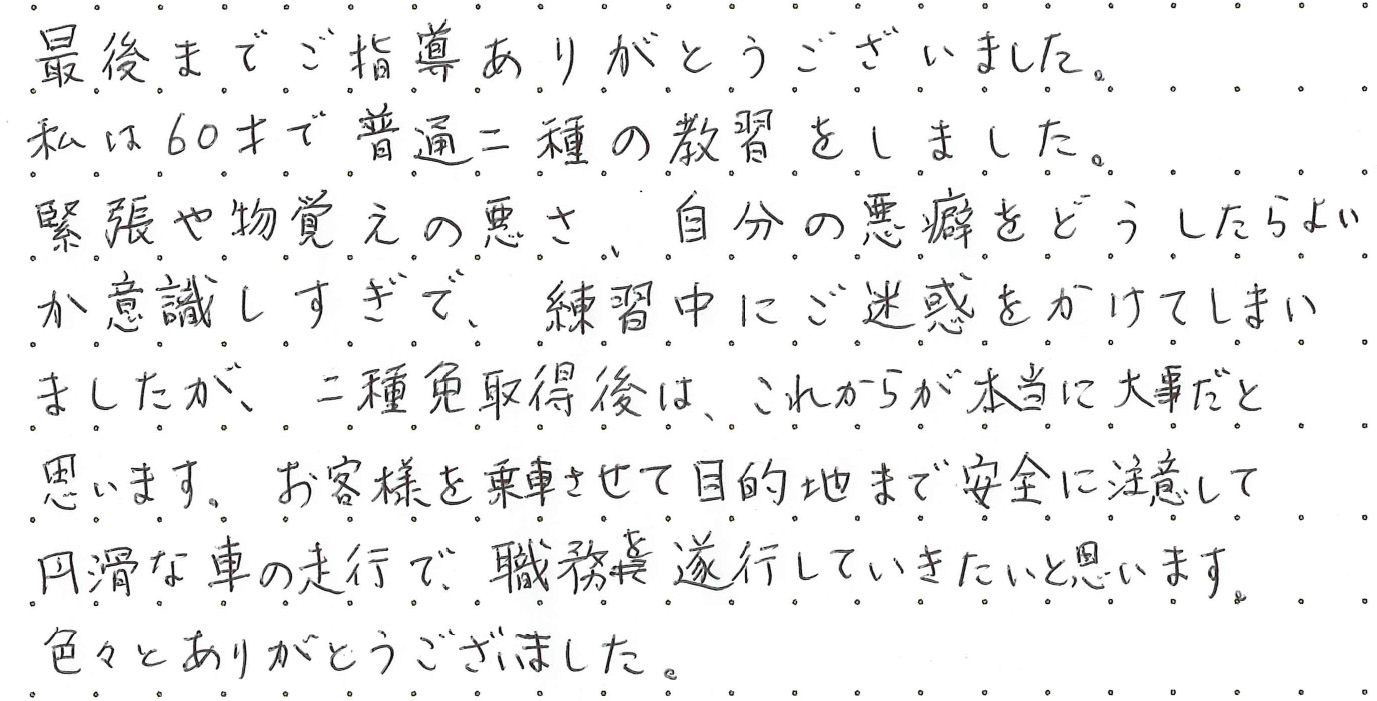 最後までご指導ありがとうございました。
私は60才で普通二種の教習をしました。
緊張や物覚えの悪さ、自分の悪癖をどうしたらよい
か意識しすぎで、練習中にご迷惑をかけてしまい
ましたが、二種免取得後は、これからが本当に大事だと
思います。お客様を乗車させて目的地まで安全に注意して
円滑な車の走行で、職務を遂行していきたいと思います。
色々とありがとうございました。